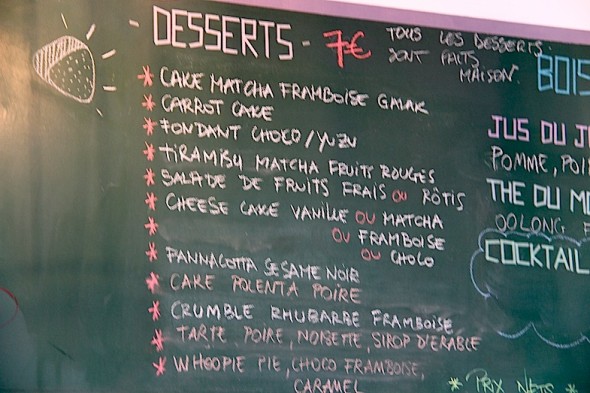 DESSERTS - 7€
TOUS LES DESSERTS
SONT FAITS
MAISON.
* CAKE MATCHA FRAMBOISE GALAK
* CARROT CAKE
* FONDANT CHOCO/YUZU
* TIRAMISU MATCHA FRUITS ROUGES
* SALADE DE FRUITS FRAIS OU RÔTIS
* CHEESE CAKE VANILLE OU MATCHA
* OU FRAMBOISE
OU CHOCO
* PANNACOTTA SESAME NOIR
* CAKE POLENTA POIRE
* CRUMBLE RHUBARBE FRAMBOISE
* TARTE POIRE, NOISETTE, SIROP D'ERABLE
* WHOOPIE PIE, CHOCO FRAMBOISE,
CARAMEL
BOIS
JUS DU J
POMME, POI
THE DU MO
OOLONG F
COCKTAIL
* PRIX NETS *